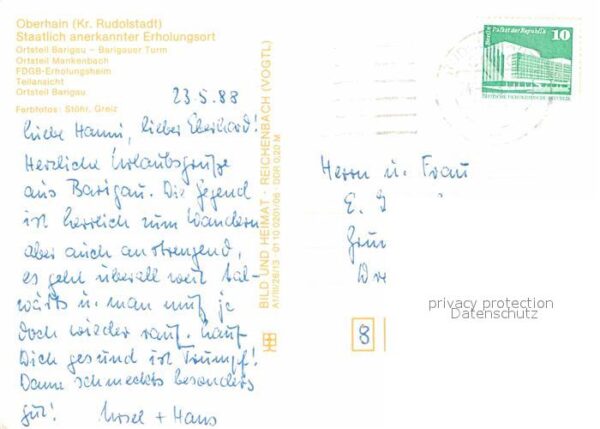 Oberhain (Kr. Rudolstadt)
Staatlich anerkannter Erholungsort
Ortsteil Barigau – Barigauer Turm
Ortsteil Mankenbach
FDGB-Erholungsheim
Teilansicht
Ortsteil Barigau
Farbfotos: Stöhr, Greiz
23.5.88
Liebe Hanni, lieber Eberhard!
Herzliche Urlaubsgrüße
aus Barigau. Die Gegend
ist herrlich zum Wandern
aber auch anstrengend,
es geht überall weit tal-
wärts u. man muß je
doch wieder rauf. Lauf
Dich gesund ist Trumpf!
Dann schmeckts besonders
gut! Ursel + Hans
BILD UND HEIMAT · REICHENBACH (VOGTL)
A1/III/26/13 01 10 0201/06 DDR 0,20 M
Berlin Palast der Republik
10
Herrn u. Frau
E.
8
privacy protection
Datenschutz